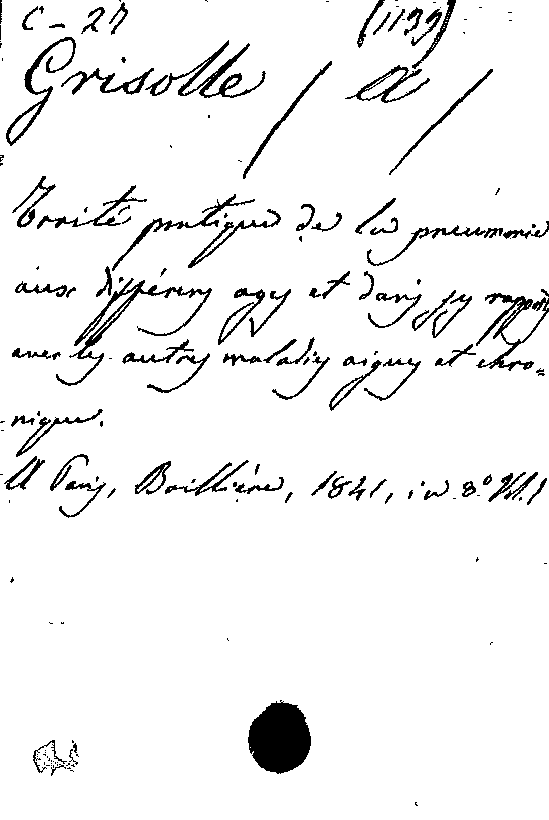 C - 27 (1139)
Grisolle / A /
Traité pratique de la pneumonie
aux différens ages et dans ses rapports
avec les autres maladies aigues et chro=
nique.
A Paris, Baillière, 1841, in 8° Vol. 1